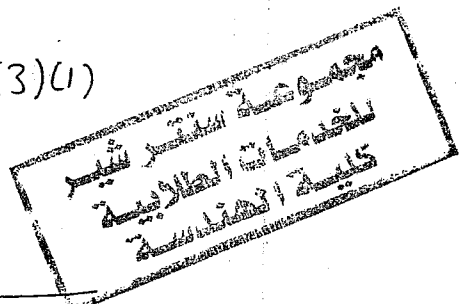 3)(1)
مجموعة سنتر شير
للخدمات الطلابية
كلية الهندسة